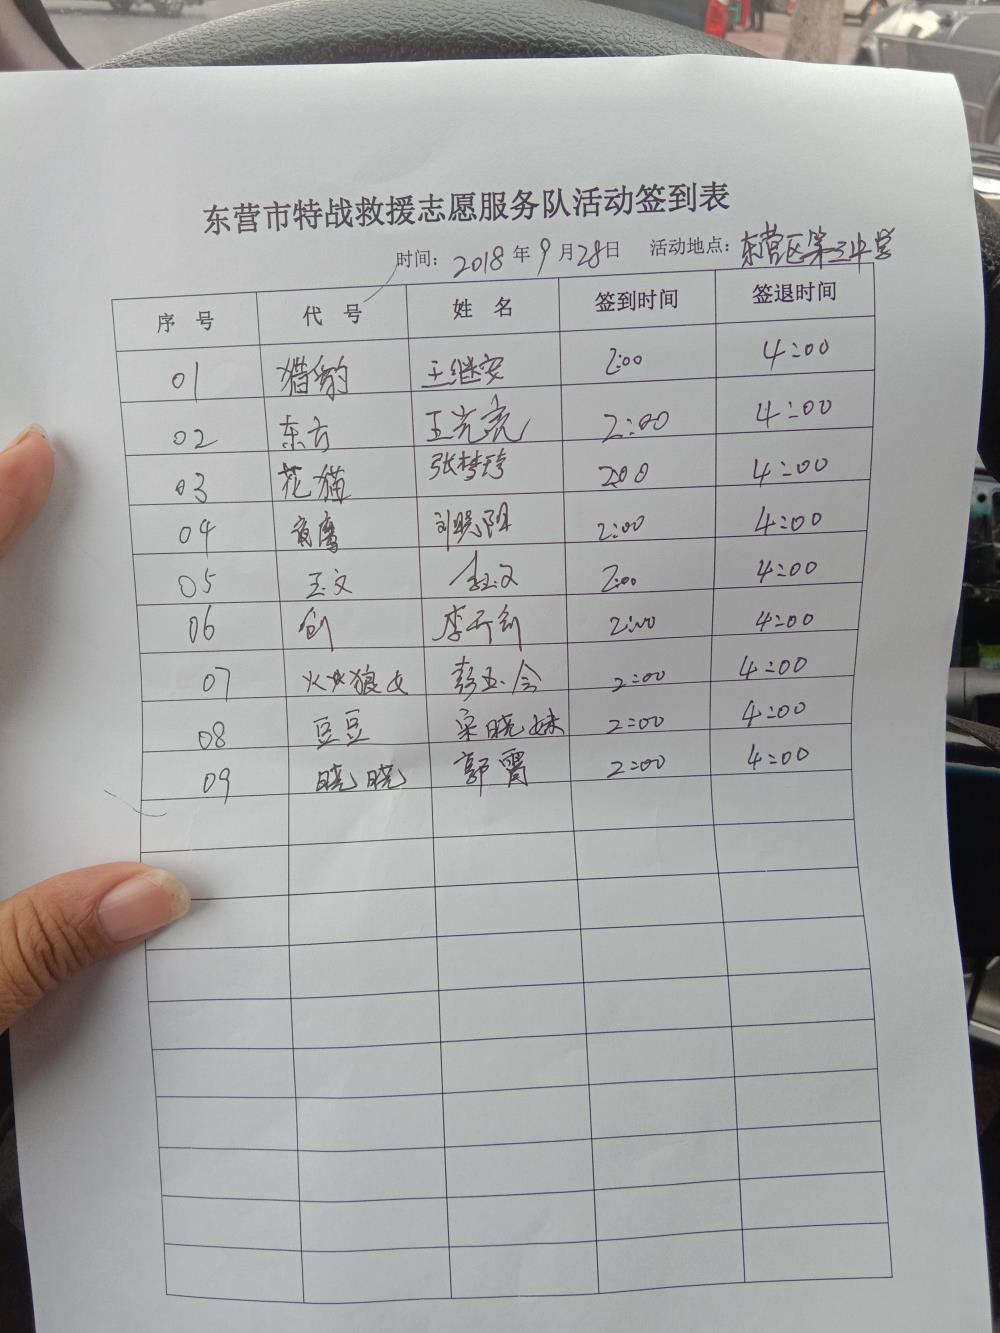 东营市特战救援志愿服务队活动签到表
时间: 2018 年 9 月 28 日 活动地点: 东营区第三中学
序 号 代 号 姓 名 签到时间 签退时间
01 猎豹 王继安 2:00 4:00
02 东方 王光亮 2:00 4:00
03 花猫 张梦 200 4:00
04 鹰 刘晓阳 2:00 4:00
05 玉文 李玉文 2:00 4:00
06 创 李 创 2:00 4:00
07 火火狼女 彭玉会 2:00 4:00
08 豆豆 宋晓妹 2:00 4:00
09 晓晓 郭霄 2:00 4:00